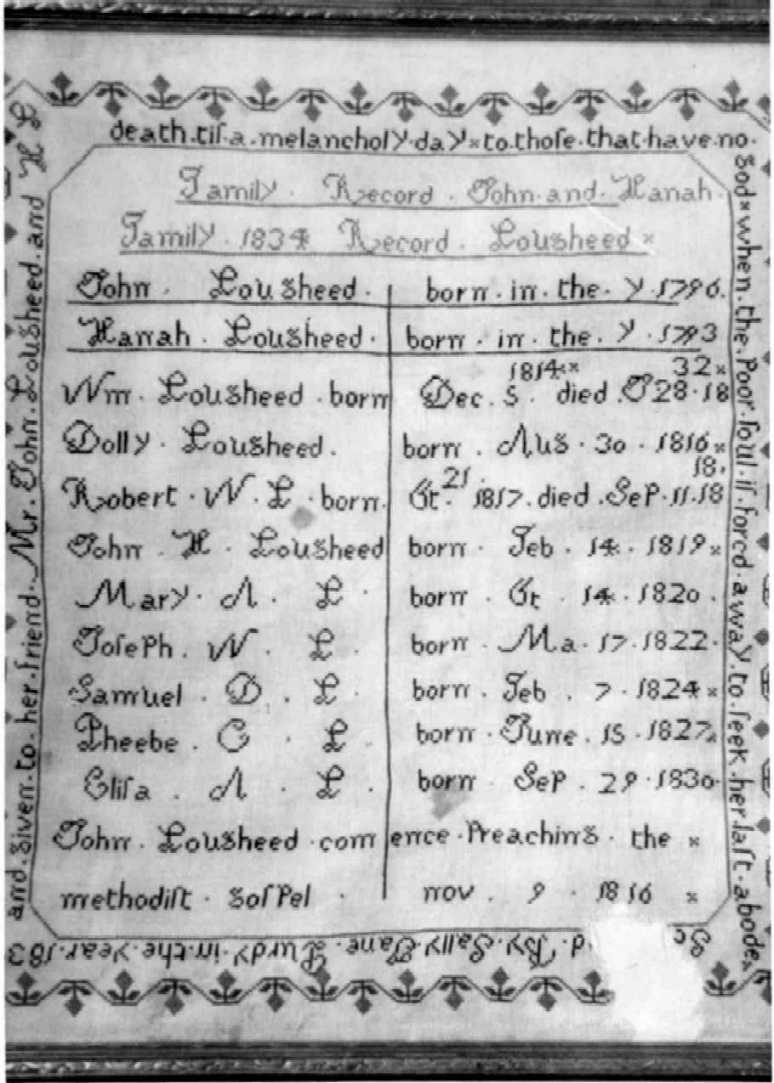 death.tiſ.a.melancholy.day×to.thoſe.that.have.no.
God×when.the.poor.ſoul.iſ.forcd.away.to.ſeek.her.laſt.abode×
Family . Record . John.and.Hanah.
Family . 1834 Record . Lougheed ×
John . Lougheed . born.in.the.y.1796.
Hanah . Lougheed . born.in.the.y.1793
1814× 32×
Wm . Lougheed . born Dec. 5. died.J 28.18
Dolly . Lougheed . born . Aug . 30 . 1816×
21. 18.
Robert . W . L . born. Ot. 1817.died.Sep.11.18
John . H . Lougheed born . Feb . 14 . 1819×
Mary . A . L . born . Ot . 14 . 1820 .
Joſeph . W . L . born . Ma . 17 . 1822 .
Samuel . D . L . born . Feb . 7 . 1824×
Pheebe . C . L . born . June . 15 . 1827×
Eliſa . A . L . born . Sep . 29 . 1830.
John . Lougheed . com ence . preaching . the ×
methodiſt . goſpel . nov . 9 . 1816 ×
By.Sally Jane.Purdy.in.the.year.183
and.given.to.her.friend.Mr.John.Lougheed.and H L